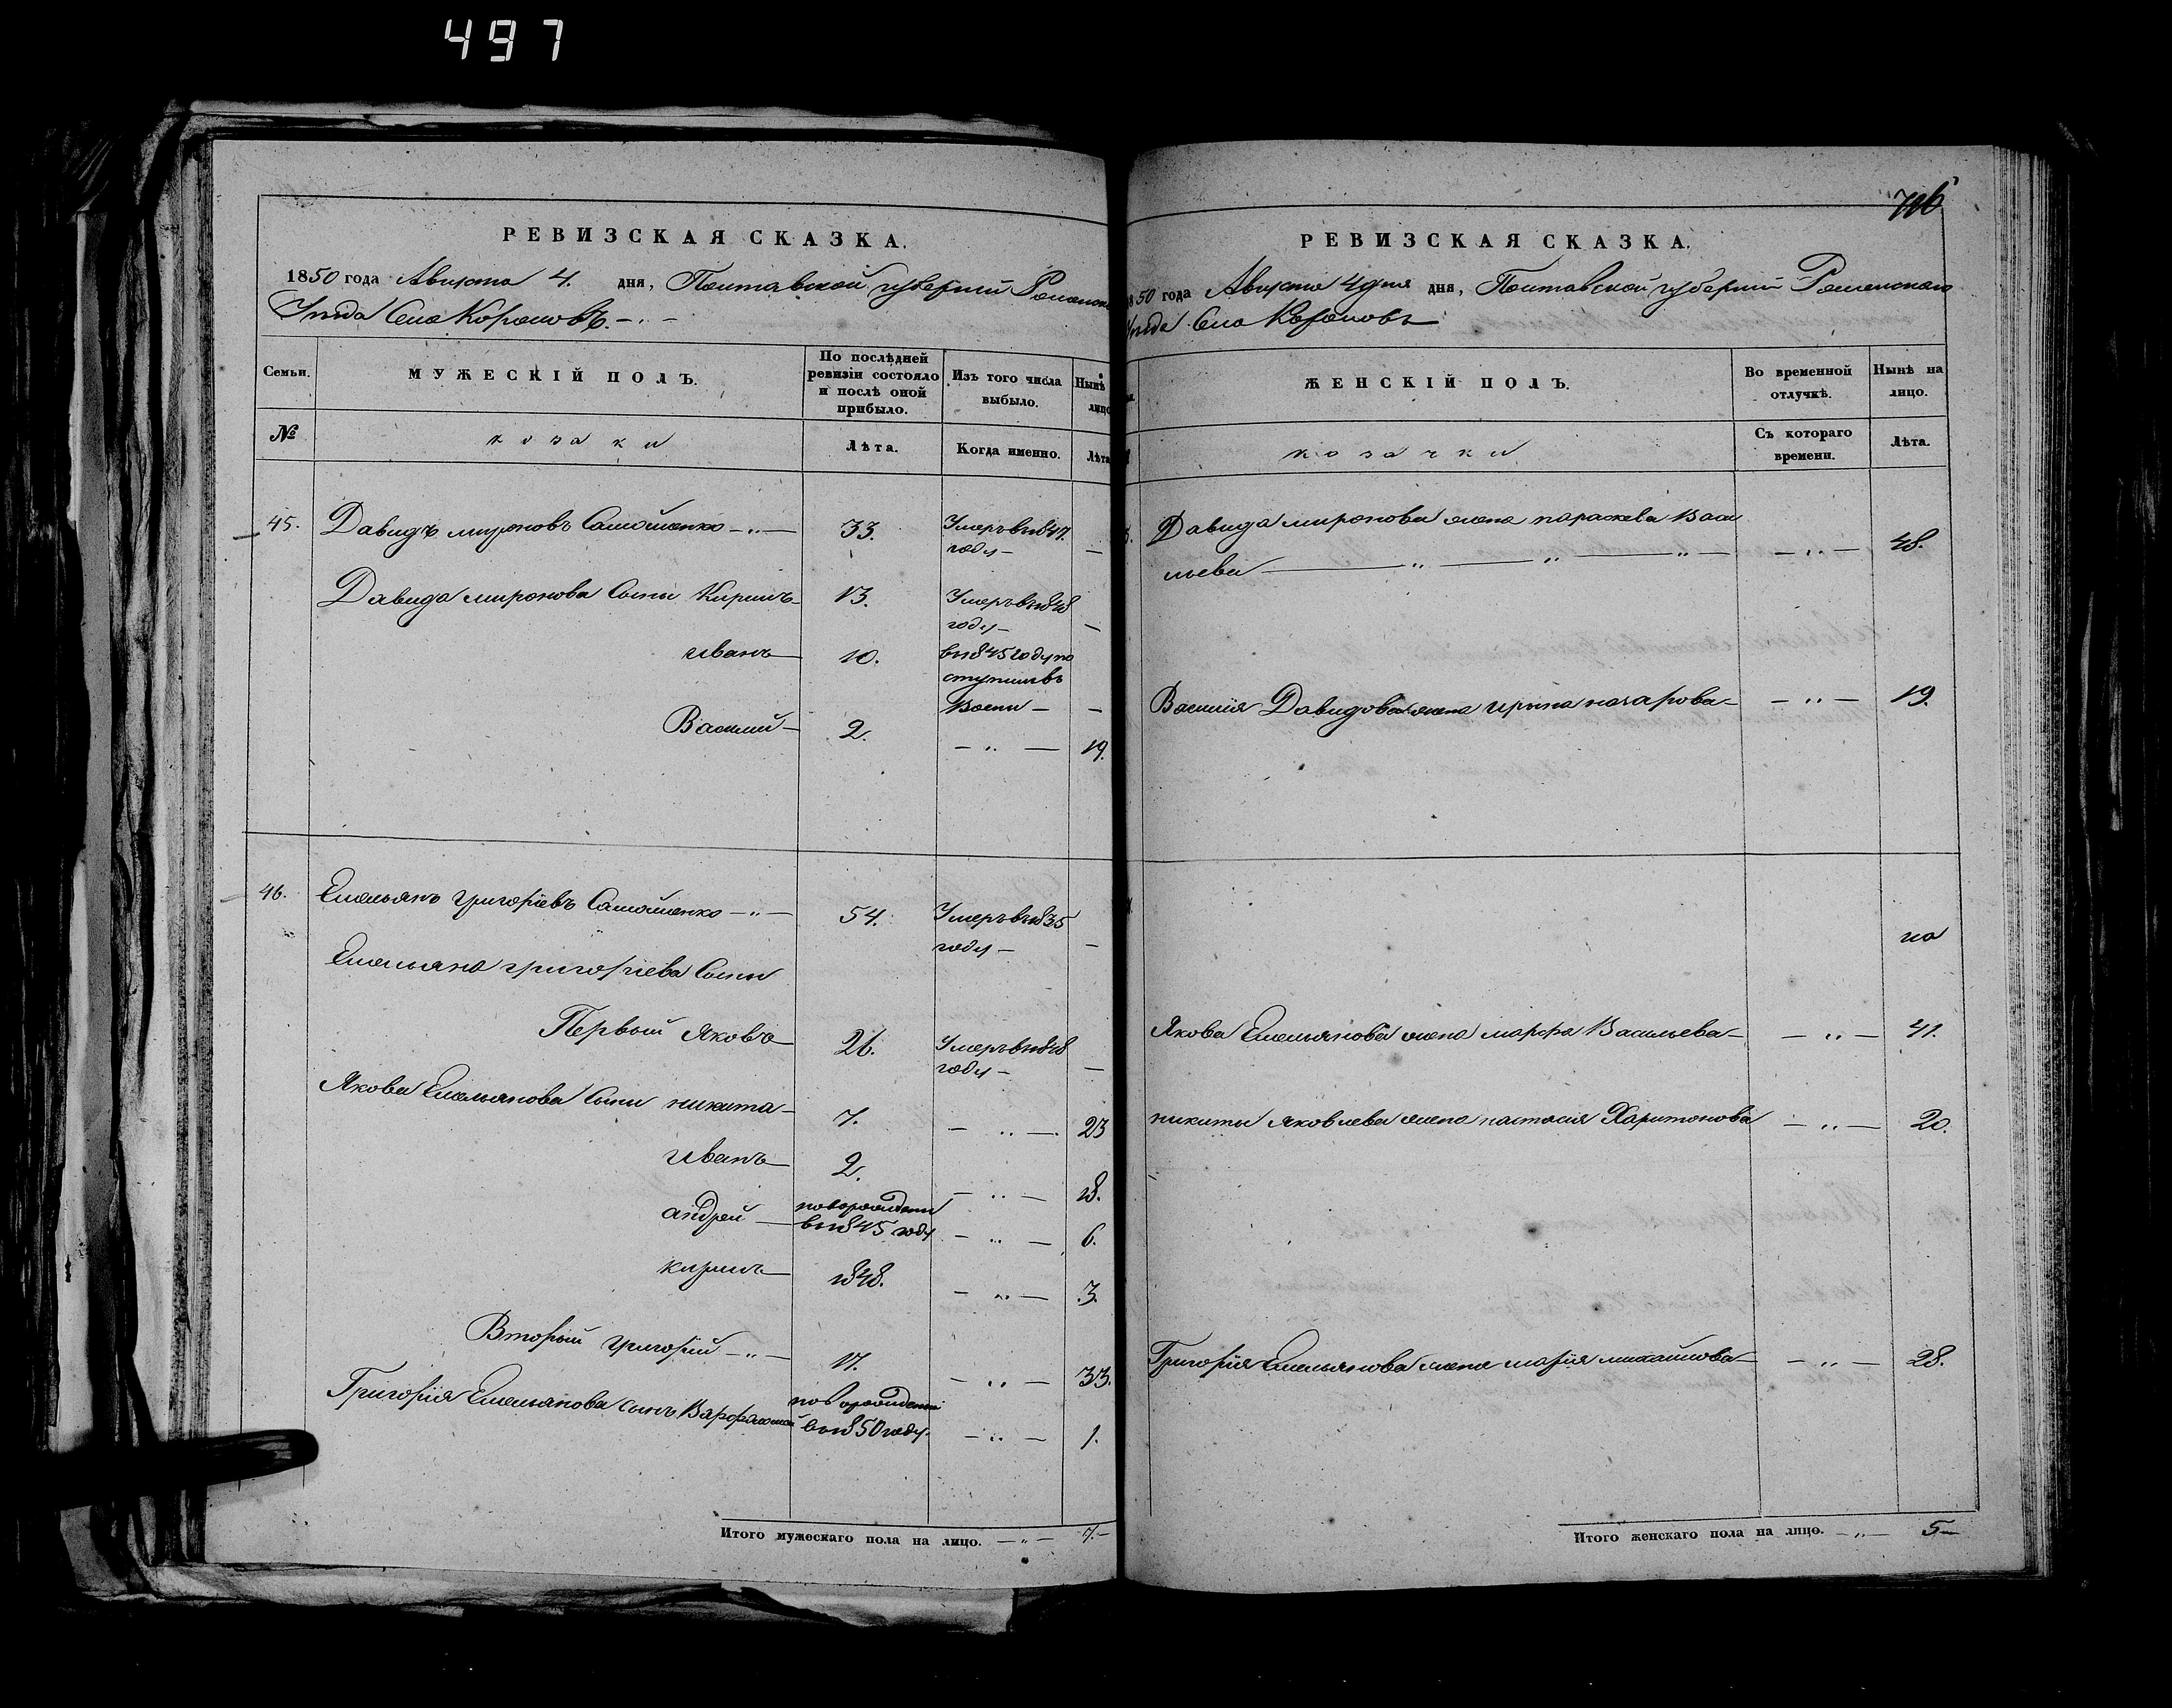 497
РЕВИЗСКАЯ СКАЗКА.
1850 года Августа 4. дня, Полтавской губернии Роменскаго
Уезда Села Коровловъ
Семьи.
МУЖЕСКІЙ ПОЛЪ.
По послѣдней ревизіи состояло и послѣ оной прибыло.
Изъ того числа выбыло.
Нынѣ лицо
№
козаки
Лѣта.
Когда именно.
Лѣта
45. Давидъ мироновъ Самойленко 33. Умеръ въ 1847. —
году —
Давида миронова Сыны Кирилъ 13. Умеръ въ 1848 —
году —
иванъ 10. въ 1845 году по
ступилъ въ
Василий 2. — „ — 19.
46. Емельянъ григориевъ Самойленко — „ — 54. Умеръ въ 1835 —
году —
Емельяна григориева Сыны
Первый яковъ 26. Умеръ въ 1848 —
году —
Якова Емельянова Сыны никита 7. — „ — 23
иванъ 2. — „ — 18.
андрей новорожденный
въ 1845 году — „ — 6.
кирилъ 1848. — „ — 3.
Вторый григорий — „ — 17. — „ — 33.
Григория Емельянова сынъ Варфоломей новорожденный
въ 1850 году. — „ — 1.
Итого мужескаго пола на лицо. — „ — 7. —
РЕВИЗСКАЯ СКАЗКА.
1850 года Августа 4 дня дня, Полтавской губернии Роменскаго
Уезда Села
ЖЕНСКІЙ ПОЛЪ.
Во временной отлучкѣ.
Нынѣ на лицо.
козачки
Съ котораго времени.
Лѣта.
Давида миронова жена параскева Васи
льева — „ — „ — — „ — 48.
Василия Давидова жена ирина назарова — „ — 19.
Якова Емельянова жена марфа Васильева — „ — 41.
никиты яковлева жена настасия Харитонова — „ — 20.
Григория Емельянова жена мария михайлова — „ — 28.
Итого женскаго пола на лицо. — „ — 5 —